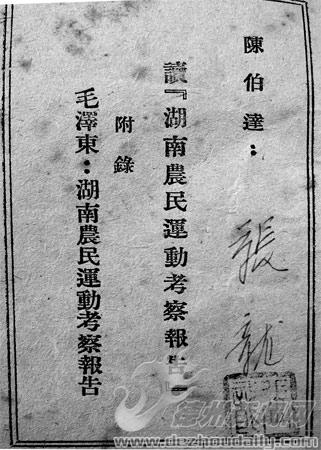 陳伯達：
讀『湖南農民運動考察報告』
附錄
毛澤東：湖南農民運動考察報告
張龍
德州新聞網
www.dezhoudaily.com